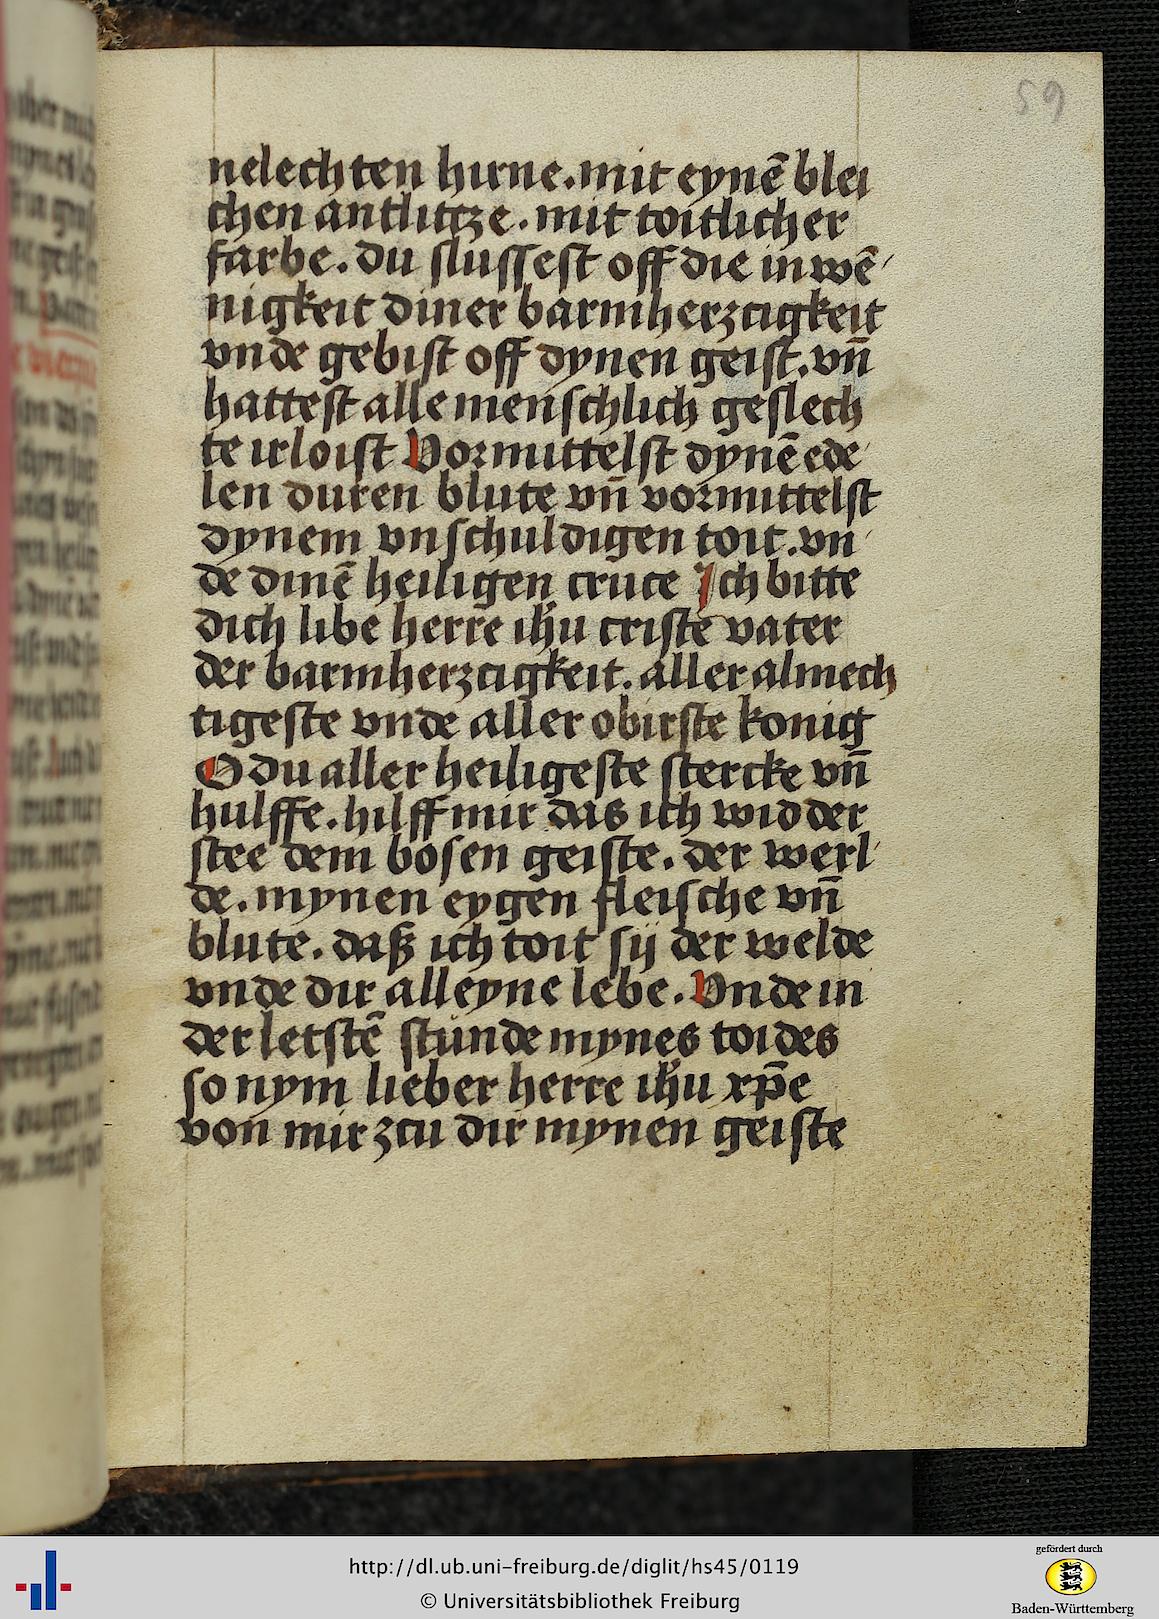 59
nelechten hirne. mit eynē blei
chen antlittze. mit toitlicher
farbe. du slussest off die inwē
nigkeit diner barmherzcigkeit
vnde gebist off dynen geist. vn̄
hattest alle menschlich geslech
te irloist Vormittelst dynē ede
len duren blute vn̄ vormittelst
dynem vnschuldigen toit. vn
de dinē heiligen cruce Ich bitte
dich libe herre ihū criste vater
der barmherzcigkeit. aller almech
tigeste vnde aller obirste konig
O du aller heiligeste stercke vn̄
hulffe. hilff mir das ich widder
stee dem bosen geiste. der werl
de. mynen eygen fleische vn̄
blute. daß ich toit sij der welde
vnde dir alleyne lebe. Vnde in
der letstē stunde mynes toides
so nym lieber herre ihū xp̄e
von mir zcu dir mynen geiste
http://dl.ub.uni-freiburg.de/diglit/hs45/0119
© Universitätsbibliothek Freiburg
gefördert durch
Baden-Württemberg